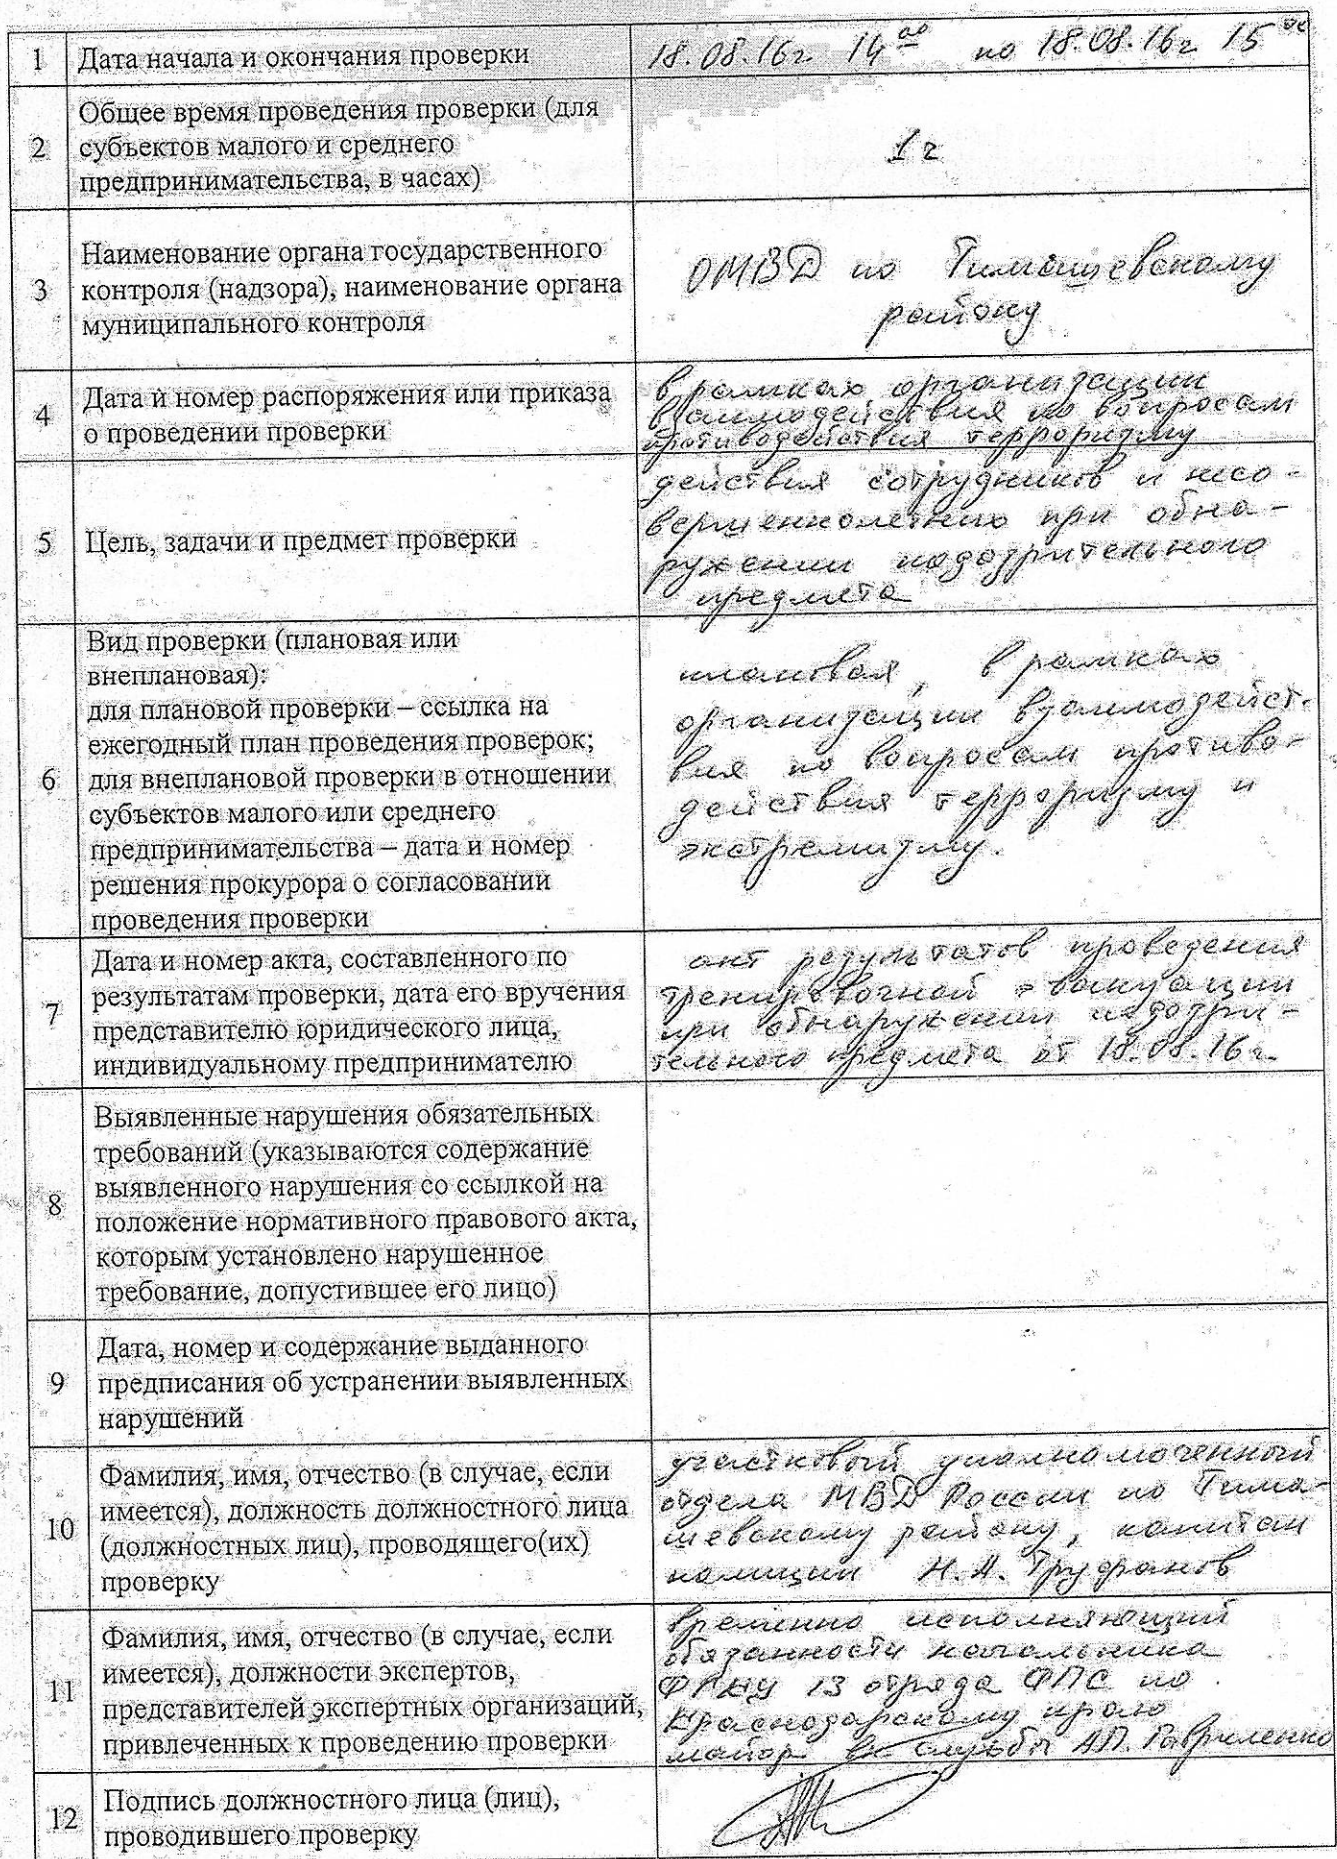 1 Дата начала и окончания проверки 18.08.16г. 14 00 по 18.08.16г 15 00
2 Общее время проведения проверки (для
субъектов малого и среднего
предпринимательства, в часах)
1 г
3 Наименование органа государственного
контроля (надзора), наименование органа
муниципального контроля
ОМВД по Тимашевскому
району
4 Дата и номер распоряжения или приказа
о проведении проверки
в рамках организации
взаимодействия по вопросам
противодействия терроризму
5 Цель, задачи и предмет проверки
действия сотрудников и несо-
вершеннолетних при обна-
ружении подозрительного
предмета
6 Вид проверки (плановая или
внеплановая):
для плановой проверки – ссылка на
ежегодный план проведения проверок;
для внеплановой проверки в отношении
субъектов малого или среднего
предпринимательства – дата и номер
решения прокурора о согласовании
проведения проверки
плановая, в рамках
организации взаимодейст-
вия по вопросам противо-
действия терроризму и
экстремизму.
7 Дата и номер акта, составленного по
результатам проверки, дата его вручения
представителю юридического лица,
индивидуальному предпринимателю
акт результатов проведения
тренировочной эвакуации
при обнаружении подозри-
тельного предмета от 18.08.16г.
8 Выявленные нарушения обязательных
требований (указываются содержание
выявленного нарушения со ссылкой на
положение нормативного правового акта,
которым установлено нарушенное
требование, допустившее его лицо)
9 Дата, номер и содержание выданного
предписания об устранении выявленных
нарушений
10 Фамилия, имя, отчество (в случае, если
имеется), должность должностного лица
(должностных лиц), проводящего(их)
проверку
участковый уполномоченный
отдела МВД России по Тима-
шевскому району, капитан
полиции Н.А. Труфанов
11 Фамилия, имя, отчество (в случае, если
имеется), должности экспертов,
представителей экспертных организаций,
привлеченных к проведению проверки
временно исполняющий
обязанности начальника
13 отряда ФПС по
Краснодарскому краю
майор вн службы А.П. Гавриленко
12 Подпись должностного лица (лиц),
проводившего проверку